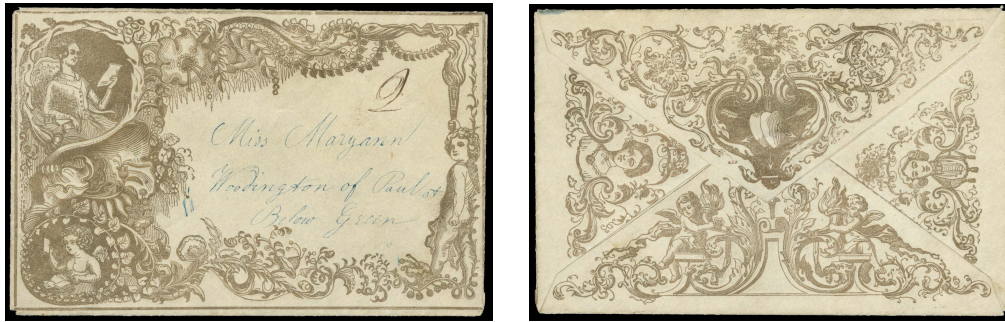 2
Miss Maryann
Woodington of Paul st
Below Green